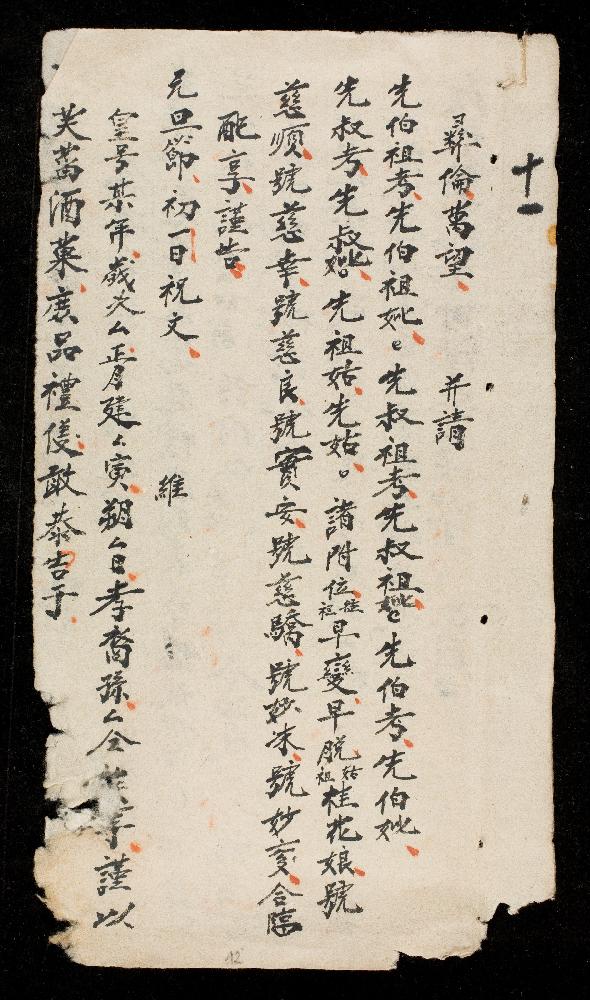 十一
彝倫萬望 并請
先伯祖考先伯祖妣〻先叔祖考先叔祖妣〻先伯考先伯妣
先叔考先叔妣先祖姑先姑。諸附位住祖早變早脱姑祖桂花娘號
慈順號慈幸號慈良號實安號慈驕號妙末號妙變仝臨
配享謹告
元旦節初一日祝文 維
皇号某年歲次厶正月建厶寅朔厶日孝裔孫厶仝 等謹以
芙蒥酒菓庶品禮儀敢恭告于
12